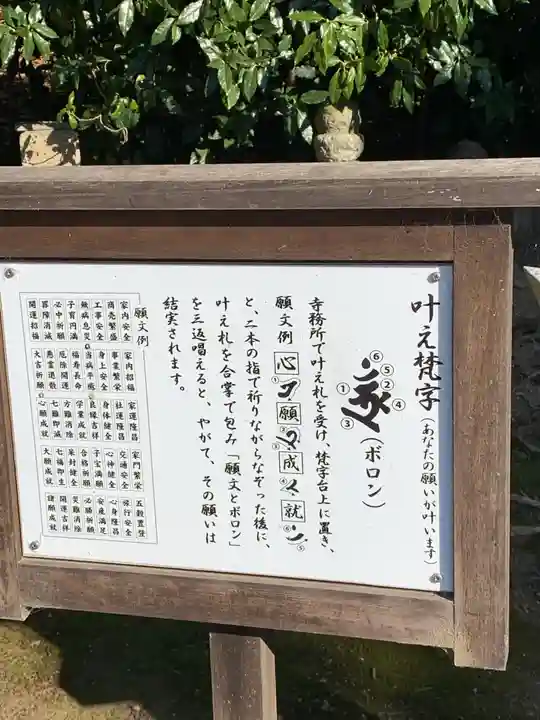 叶え梵字(あなたの願いが叶います)
⑥⑤②④①③
(ボロン)
寺務所で叶え札を受け、梵字台上に置き、
願文例 心 ① 願 ② ③ 成 ④ 就 ⑥ ⑤
と、二本の指で祈りながらなぞった後に、
叶え札を合掌で包み「願文とボロン」
を三返唱えると、やがて、その願いは
結実されます。
願文例
家内安全 家内招福 家運隆昌 家門繁栄 五穀豊登
商売繁盛 事業繁栄 社運隆昌 交通安全 旅行安全
工事安全 身上安全 身体健全 心神健全 心身隆昌
無病息災 当病平癒 良縁吉祥 子宝満願 安産満足
子育円満 福寿長命 学業成就 合格祈願 必勝祈願
必中祈願 厄除開運 方難消除 星封健全 災難消除
罪障消滅 悪霊退散 七難即滅 七福即生 開運吉祥
開運招福 大吉祈願 心願成就 大願成就 諸願成就